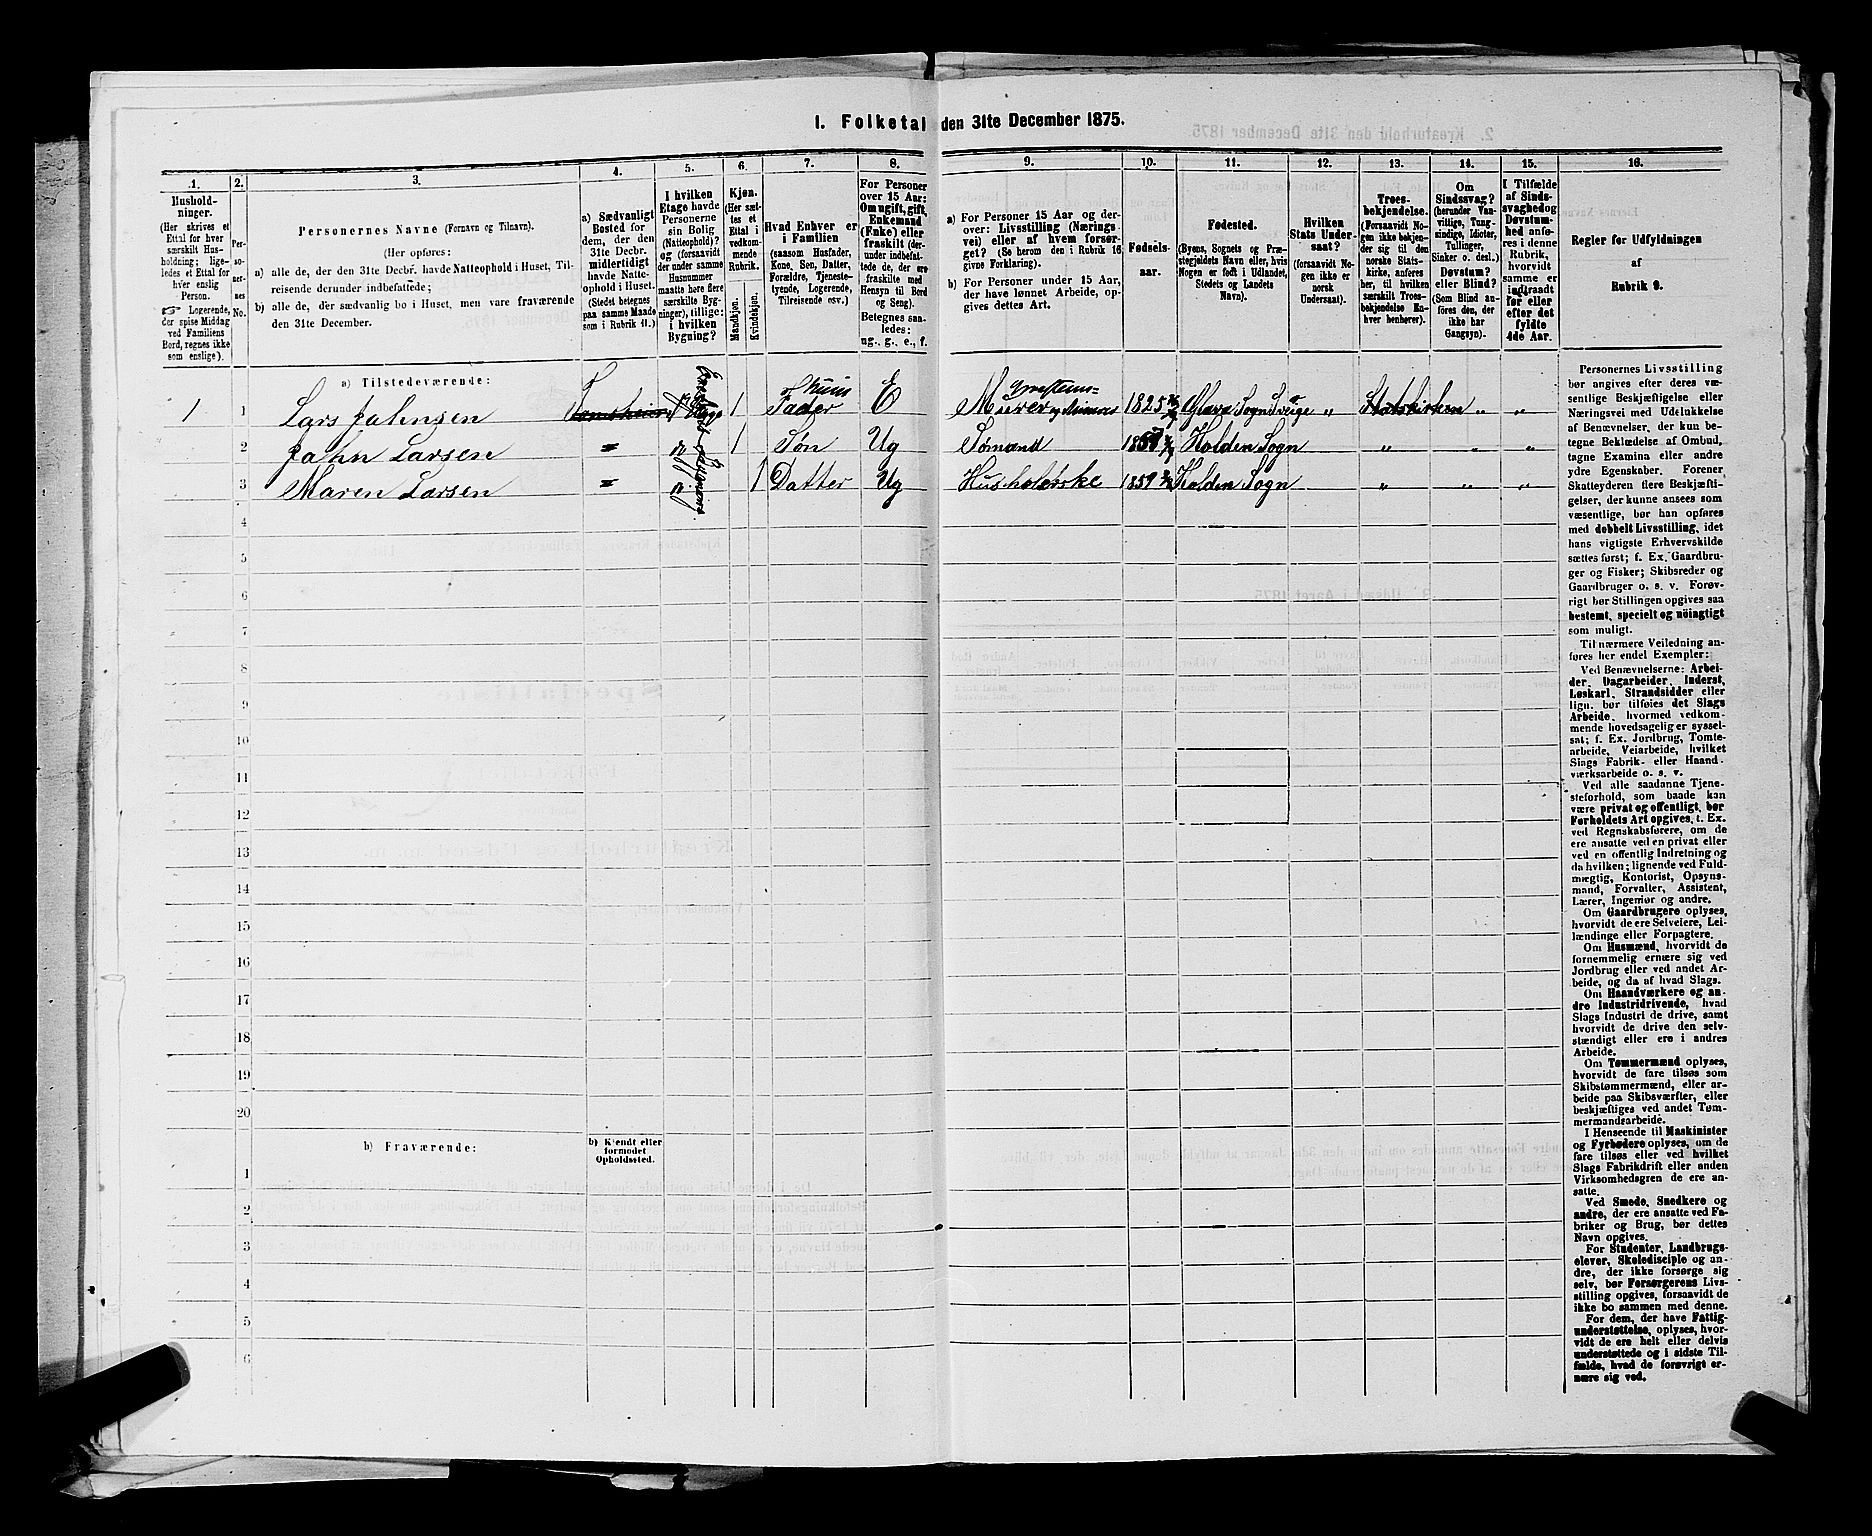 I. Folketal den 31te December 1875.
1. 2. 3. 4. 5. 6. 7. 8. 9. 10. 11. 12. 13. 14. 15. 16.
Hushold-
ninger.
(Her skrives et
Ettal for hver
særskilt Hus-
holdning; lige-
ledes et Ettal for
hver enslig
Person.
☞ Logerende,
der spise Middag
ved Familiens
Bord, regnes ikke
som enslige).
Per-
so-
ner-
nes
No.
Personernes Navne (Fornavn og Tilnavn).
(Her opføres:
a) alle de, der den 31te Decbr. havde Natteophold i Huset, Til-
reisende derunder indbefattede;
b) alle de, der sædvanlig bo i Huset, men vare fraværende
den 31te December.
a) Sædvanligt
Bosted for
dem, der den
31te Decbr.
midlertidigt
havde Natte-
ophold i Huset.
(Stedet betegnes
paa samme Maade
som i Rubrik 11.)
I hvilken
Etage havde
Personerne
sin Bolig
(Natteophold)?
og (forsaavidt
der under samme
Husnummer
maatte høre flere
særskilte Byg-
ninger), tillige:
i hvilken
Bygning?
Kjøn.
(Her sæt-
tes et
Ettal i
vedkom-
mende
Rubrik.
Mandkjøn.
Kvindekjøn.
Hvad Enhver er
i Familien
(saasom Husfader,
Kone, Søn, Datter,
Forældre, Tjeneste-
tyende, Logerende,
Tilreisende osv.)
For Personer
over 15 Aar:
Om ugift, gift,
Enkemand
(Enke) eller
fraskilt (der-
under indbefat-
tede de, der ere
fraskilte med
Hensyn til Bord
og Seng).
Betegnes saa-
ledes:
ug., g., e., f.
a) For Personer 15 Aar og der-
over: Livsstilling (Nærings-
vei) eller af hvem forsør-
get? (Se herom den i Rubrik 16
givne Forklaring).
b) For Personer under 15 Aar,
der have lønnet Arbeide, op-
gives dettes Art.
Fødsels-
aar.
Fødested.
(Byens, Sognets og Præ-
stegjeldets Navn eller, hvis
Nogen er født i Udlandet,
Stedets og Landets
Navn).
Hvilken
Stats Under-
saat?
(forsaavidt No-
gen ikke er
norsk
Undersaat).
Troes-
bekjendelse.
(Forsaavidt No-
gen ikke bekjen-
der sig til den
norske Stats-
kirke, anføres
her, til hvilken
særskilt Troes-
bekjendelse En-
hver henhører).
Om
Sindssvag?
(herunder Van-
vittige, Tung-
sindige, Idioter,
Tullinger,
Sinker o. desl.)
Døvstum?
eller Blind?
(Som Blind an-
føres den, der
ikke har
Gangsyn).
I Tilfælde
af Sinds-
svaghed og
Døvstum-
hed anfø-
res i denne
Rubrik,
hvorvidt
samme er
indtraadt
før eller
efter det
fyldte
4de Aar.
Regler for Udfyldningen
af
Rubrik 9.
a) Tilstedeværende:
1 1 Lars Jahnsen 1 Huus Fader E Murer 1825 Glava Sogn Sverige „ Statskirken „ „
2 Jahn Larsen 1 Søn Ug Sømand 1857 Holden Sogn „ „ „
3 Maren Larsen 1 Datter Ug Husholderske 1859 Holden Sogn „ „ „
4
5
6
7
8
9
10
11
12
13
14
15
16
17
18
19
20
b) Fraværende:
b) Kjendt eller
formodet
Opholdssted.
1
2
3
4
5
6
Personernes Livsstilling
bør angives efter deres væ-
sentlige Beskjæftigelse eller
Næringsvei med Udelukkelse
af Benævnelser, der kun be-
tegne Beklædelse af Ombud,
tagne Examina eller andre
ydre Egenskaber. Forener
Skatteyderen flere Beskjæfti-
gelser, der kunne ansees som
væsentlige, bør han opføres
med dobbelt Livsstilling, idet
hans vigtigste Erhvervskilde
sættes først; f. Ex. Gaardbru-
ger og Fisker; Skibsreder og
Gaardbruger o. s. v. Forøv-
rigt bør Stillingen opgives saa
bestemt, specielt og nöiagtigt
som muligt.
Til nærmere Veiledning an-
føres her endel Exempler:
Ved Benævnelserne: Arbei-
der, Dagarbeider, Inderst,
Løskarl, Strandsidder eller
lign. bør tilføies det Slags
Arbeide, hvormed vedkom-
mende hovedsagelig er syssel-
sat; f. Ex. Jordbrug, Tomte-
arbeide, Veiarbeide, hvilket
Slags Fabrik- eller Haand-
værksarbeide o. s. v.
Ved alle saadanne Tjene-
steforhold, som baade kan
være privat og offentligt, bør
Forholdets Art opgives, t. Ex.
ved Regnskabsførere, om de
ere ansatte ved en privat eller
ved en offentlig Indretning og
da hvilken; lignende ved Fuld-
mægtig, Kontorist, Opsyns-
mand, Forvalter, Assistent,
Lærer, Ingeniør og andre.
Om Gaardbrugere oplyses,
hvorvidt de ere Selveiere, Lei-
lændinge eller Forpagtere.
Om Husmænd, hvorvidt de
fornemmelig ernære sig ved
Jordbrug eller ved andet Ar-
beide, og da af hvad Slags.
Om Haandværkere og an-
dre Industridrivende, hvad
Slags Industri de drive, samt
hvorvidt de drive den selv-
stændigt eller ere i andres
Arbeide.
Om Tømmermænd oplyses,
hvorvidt de fare tilsøs som
Skibstømmermænd, eller ar-
beide paa Skibsværfter, eller
beskjæftiges ved andet Tøm-
mermandsarbeide.
I Henseende til Maskinister
og Fyrbødere oplyses, om de
fare tilsøs eller ved hvilket
Slags Fabrikdrift eller anden
Virksomhedsgren de ere an-
satte.
Ved Smede, Snedkere og
andre, der ere ansatte ved Fa-
briker og Brug, bør dettes
Navn opgives.
For Studenter, Landbrugs-
elever, Skoledisciple og an-
dre, der ikke forsørge sig
selv, bør Forsørgerens Livs-
stilling opgives, forsaavidt de
ikke bo sammen med denne.
For dem, der have Fattig-
understøttelse, oplyses, hvor-
vidt de ere helt eller delvis
understøttede og i sidste Til-
fælde, hvad de forøvrigt er-
nære sig ved.